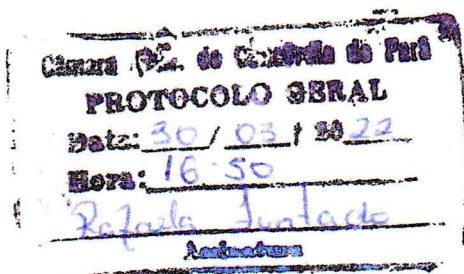 Câmara de do Pará
PROTOCOLO GERAL
Data: 30 / 03 / 2022
Hora: 16:50
Rafaela Furtado
Assinatura